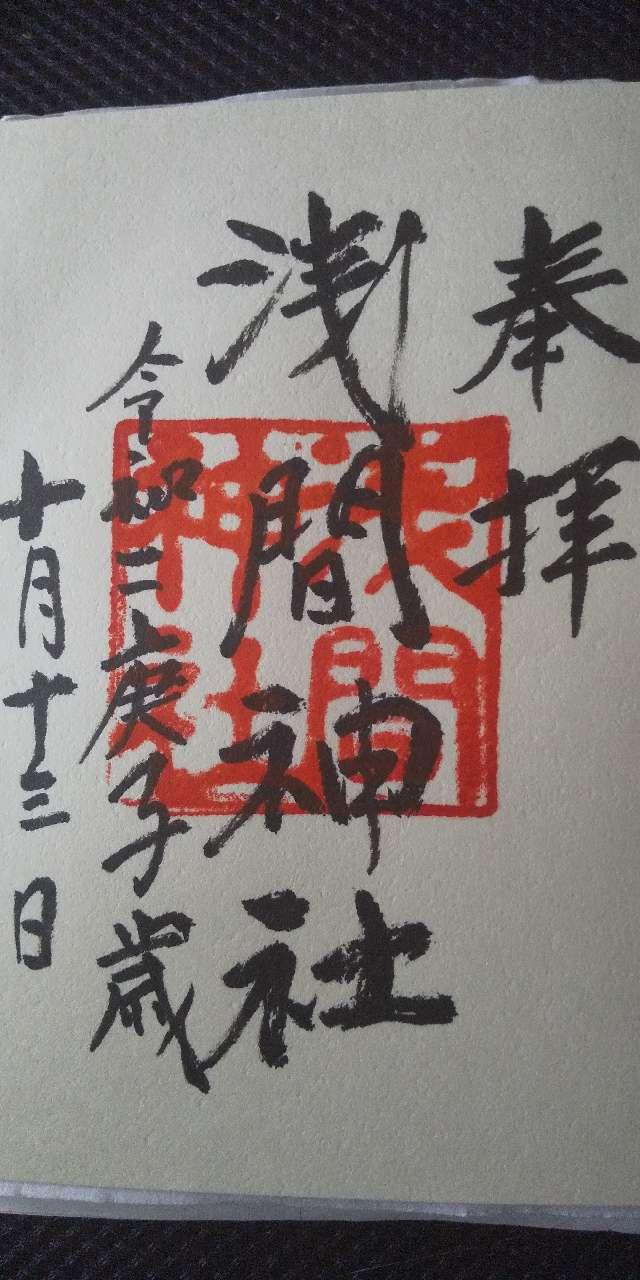 奉拝
浅間神社
令和二庚子歳
十月十三日
浅間神社